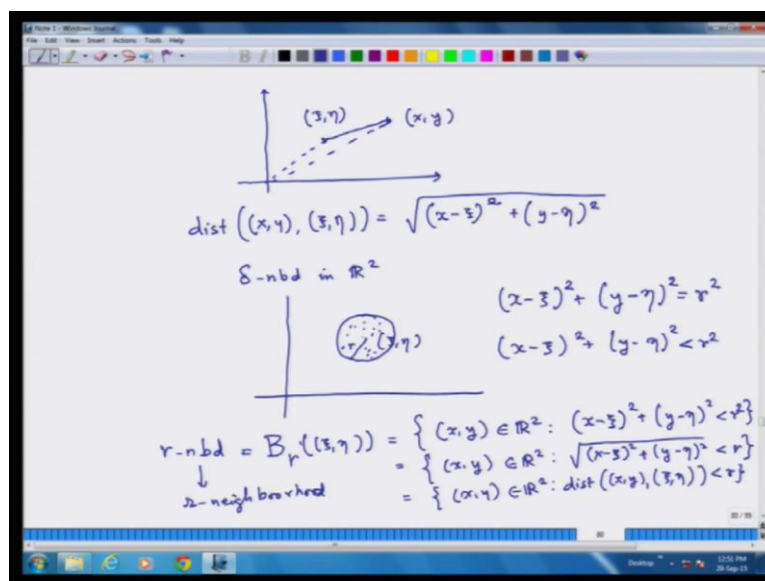 Note 1 - Windows Journal
File Edit View Insert Actions Tools Help
(ξ,η) (x,y)
dist ((x,y), (ξ,η)) = √((x-ξ)² + (y-η)²)
δ-nbd in ℝ²
(x-ξ)² + (y-η)² = r²
r (ξ,η)
(x-ξ)² + (y-η)² < r²
r-nbd = B_r((ξ,η)) = { (x,y) ∈ ℝ² : (x-ξ)² + (y-η)² < r² }
= { (x,y) ∈ ℝ² : √((x-ξ)² + (y-η)²) < r }
↓
r-neighbourhood = { (x,y) ∈ ℝ² : dist((x,y), (ξ,η)) < r }
80
Desktop
12:51 PM
28-Sep-15